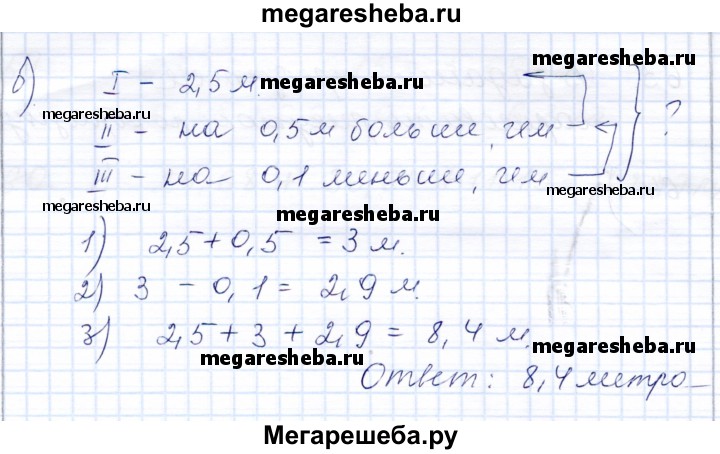 megaresheba.ru
б) I – 2,5 м. megaresheba.ru megaresheba.ru
megaresheba.ru
II – на 0,5 м больше, чем ?
III – на 0,1 меньше, чем
megaresheba.ru megaresheba.ru megaresheba.ru
1) 2,5 + 0,5 = 3 м.
2) 3 – 0,1 = 2,9 м.
3) 2,5 + 3 + 2,9 = 8,4 м.
megaresheba.ru megaresheba.ru
Ответ: 8,4 метра
megaresheba.ru megaresheba.ru
Мегарешеба.ру